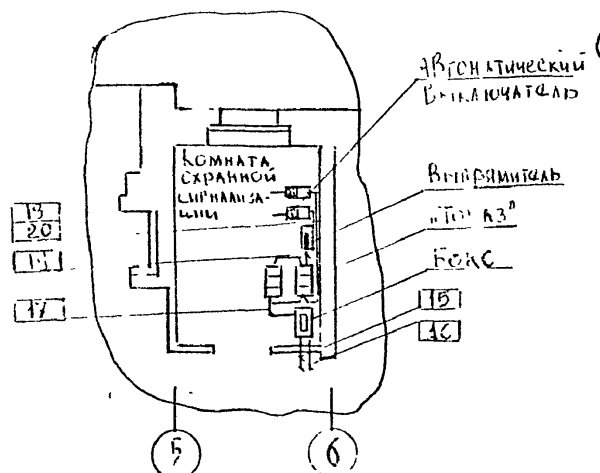 Автоматический
выключатель
Комната
охранной
сигнализа-
ции
Выпрямитель
"Топаз"
Бокс
13
20
17
15
16
5
6